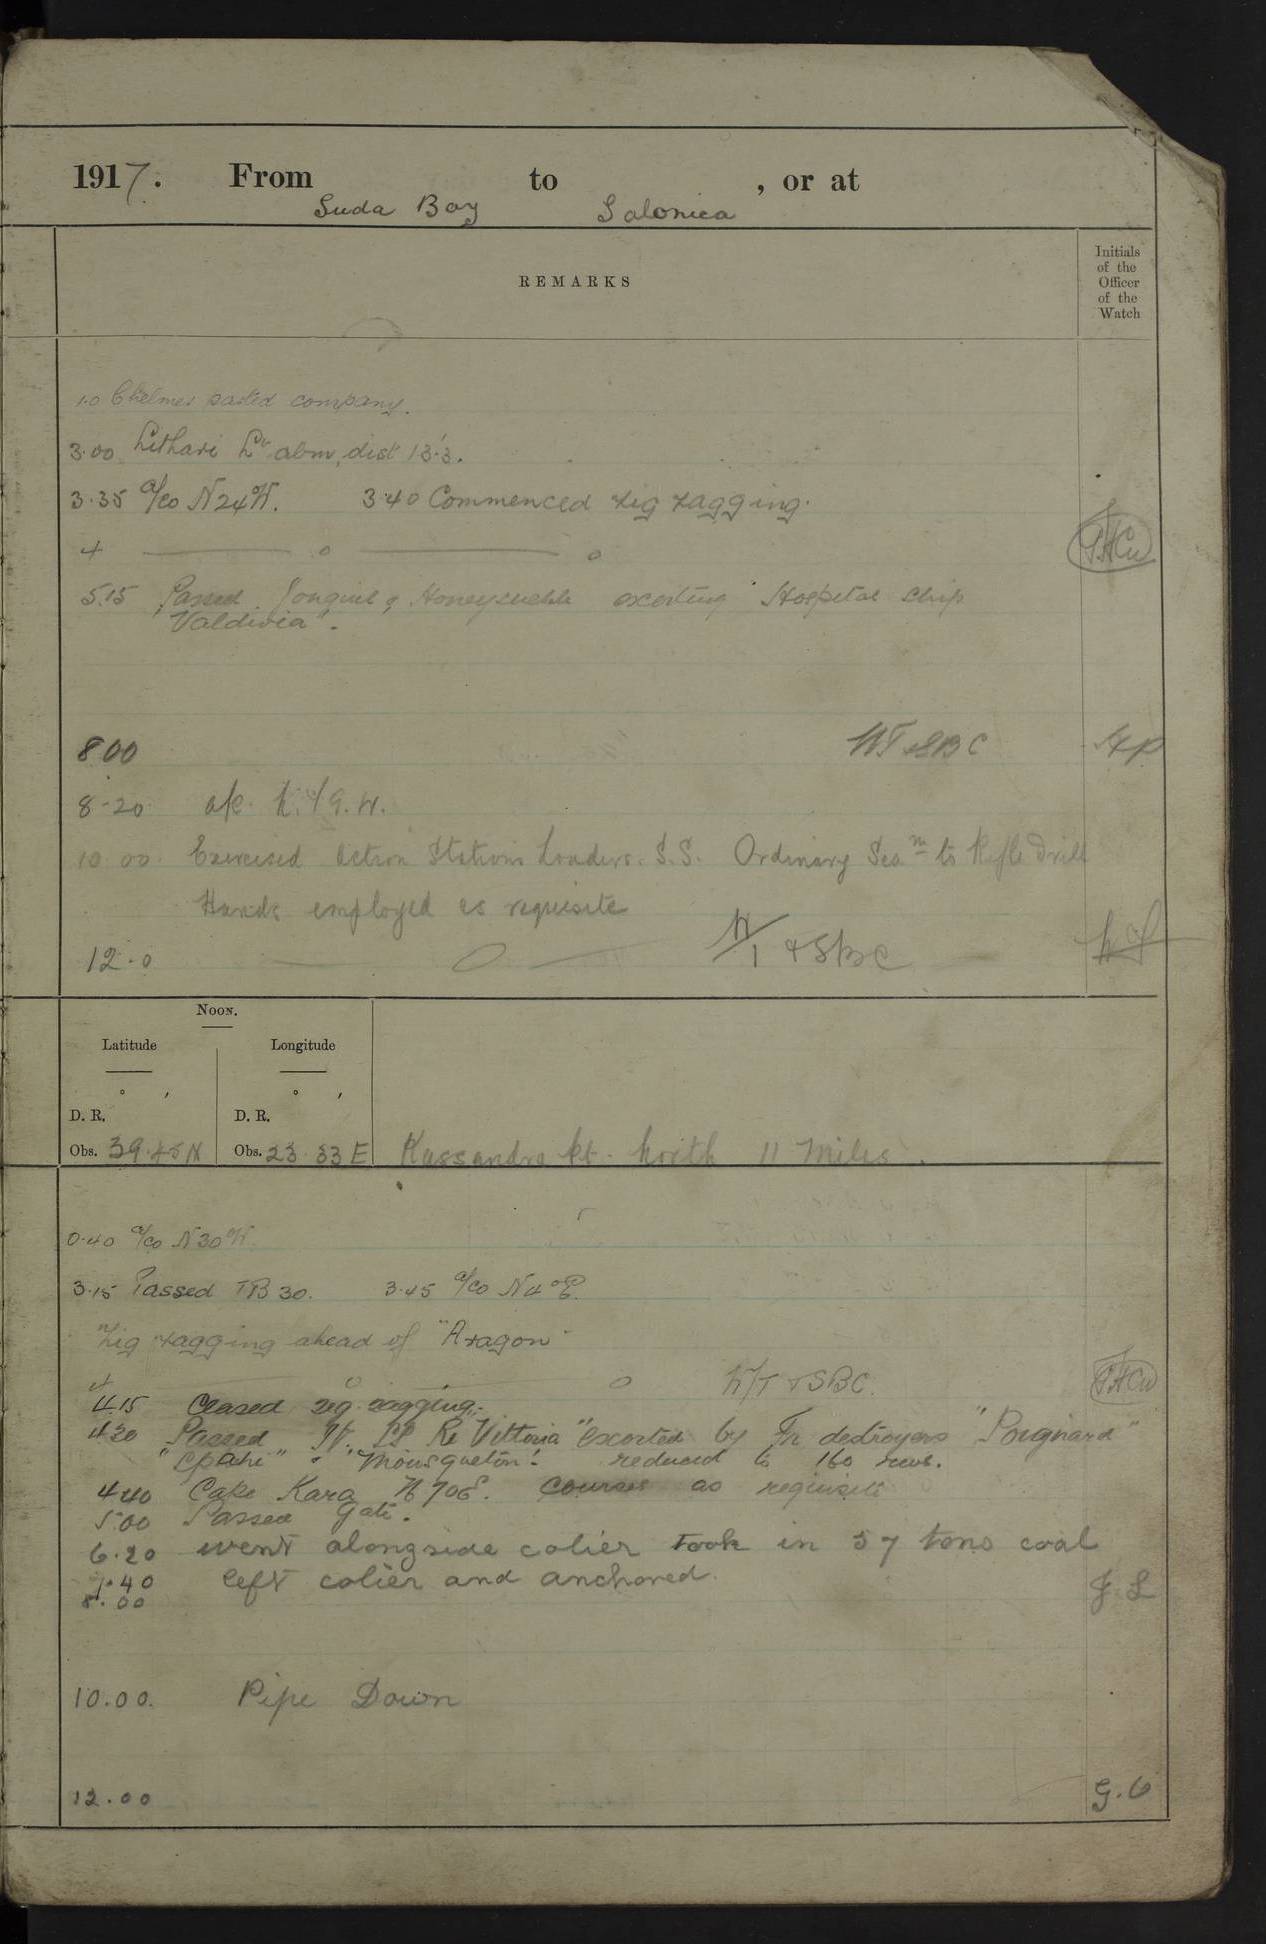 1917. From to , or at
Suda Bay Salonica
REMARKS
Initials
of the
Officer
of the
Watch
1.0 Chelmer parted company.
3.00 Lithari Lt abm, dist 13'.3.
3.35 a/co N24°W. 3.40 Commenced zig zagging.
4 o o
5.15 Passed Jonquil & Honeysuckle escorting Hospital Ship
"Valdivia".
8.00 WT SBC
8-20 a/c N. 19. W.
10.00 Exercised Action Stations Loaders. S.S. Ordinary Sea.m to Rifle Drill
Hands employed as requisite
12.0 W/T & SBC
Noon.
Latitude Longitude
° ′ ° ′
D. R. D. R.
Obs. 39.45N Obs. 23 33 E Kassandra Pt. North 11 Miles.
0.40 a/co N30°W.
3.15 Passed TB 30. 3.45 a/co N4°E.
Zig zagging ahead of "Aragon"
4 o o W/T & SBC.
4.15 Ceased zig-zagging.
4.30 Passed Re Vittoria" escorted by Fr destroyers "Poignard"
"Spahi" & "Mousqueton". reduced to 160 revs.
4.40 Cape Kara N70E. Courses as requisite
5.00 Passed Gate.
6.20 went alongside colier took in 57 tons coal
7.40 left colier and anchored.
8.00 J. L
10.00. Pipe Down
12.00 G. C